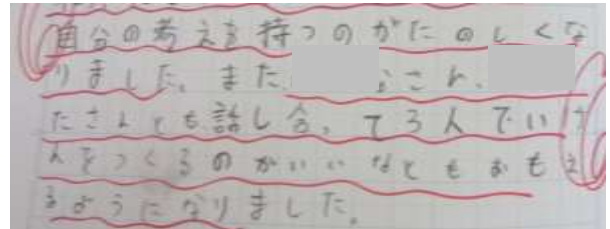 自分の考えを持つのがたのしくな
りました。また、 さん、
たさんとも話し合って3人でい
んをつくるのがいいなともおもえ
るようになりました。